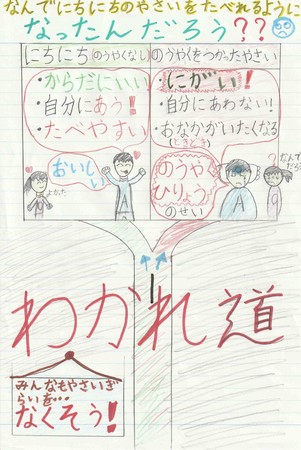 なんでにちにちのやさいをたべれるように
なったんだろう??
にちにち(のうやくなし)
・からだにいい
・自分にあう!
・たべやすい
おいしい
よかった
のうやくをつかったやさい
・にがい!
・自分にあわない!
・おなかがいたくなる
(ときどき)
のうやく
ひりょう
のせい
A
A
なんで
だろう
わかれ道
みんなもやさいぎ
らいを…
なくそう!